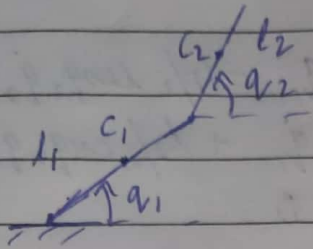 C₂ l₂
q₂
C₁
l₁
q₁